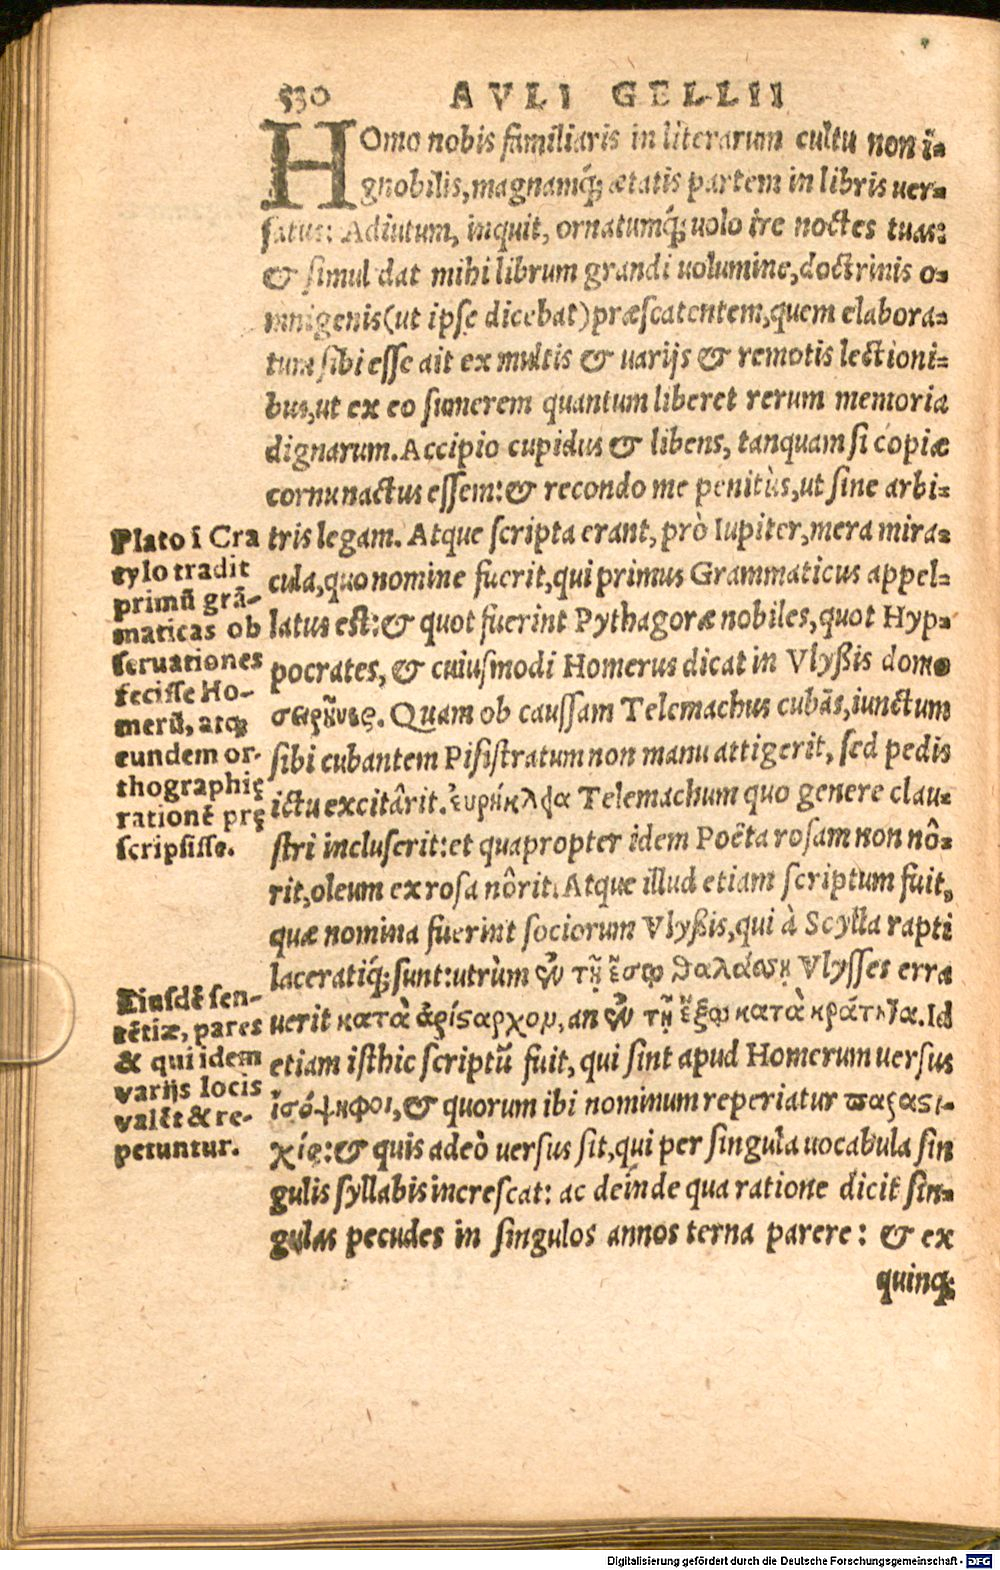 530 AVLI GELLII
HOmo nobis familiaris in literarum cultu non ĩ=
gnobilis, magnamq́; ætatis partem in libris uer=
satus: Adiutum, inquit, ornatumq́; uolo ire noctes tuas:
& simul dat mihi librum grandi uolumine, doctrinis o=
mnigenis (ut ipse dicebat) præscatentem, quem elabora=
tum sibi esse ait ex multis & uarijs & remotis lectioni=
bus, ut ex eo sumerem quantum liberet rerum memoria
dignarum. Accipio cupidus & libens, tanquam si copiæ
cornu nactus essem: & recondo me penitùs, ut sine arbi=
tris legam. Atque scripta erant, prò Iupiter, mera mira=
cula, quo nomine fuerit, qui primus Grammaticus appel=
latus est: & quot fuerint Pythagoræ nobiles, quot Hyp=
pocrates, & cuiusmodi Homerus dicat in Vlyßis domo
Quam ob caussam Telemachus cubãs, iunctum
sibi cubantem Pisistratum non manu attigerit, sed pedis
ictu excitârit. ἐυρήκλᾳα Telemachum quo genere clau=
stri incluserit: et quapropter idem Poëta rosam non nô=
rit, oleum ex rosa nôrit. Atque illud etiam scriptum fuit,
quæ nomina fuerint sociorum Vlyßis, qui à Scylla rapti
laceratiq́; sunt: utrùm ὧ τῇ ἔσω θαλάσσῃ Vlysses erra
uerit κατὰ ἀρίσαρχον, an ὧ τῇ ἔξω κατὰ κράτητα. Id
etiam isthic scriptũ fuit, qui sint apud Homerum uersus
ἰσόψηφοι, & quorum ibi nominum reperiatur παραστι-
χίς: & quis adeò uersus sit, qui per singula uocabula sin
gulis syllabis increscat: ac deinde qua ratione dicit sin=
gulas pecudes in singulos annos terna parere: & ex
quinq;
Plato ĩ Cra
tylo tradit
primũ grã-
maticas ob
seruationes
fecisse Ho-
merũ, atq;
eundem or-
thographię
rationẽ prę
scripsisse.
Eiusdẽ sen-
tẽtiæ, pares
& qui idem
varijs locis
valẽt & re-
petuntur.
Digitalisierung gefördert durch die Deutsche Forschungsgemeinschaft - DFG